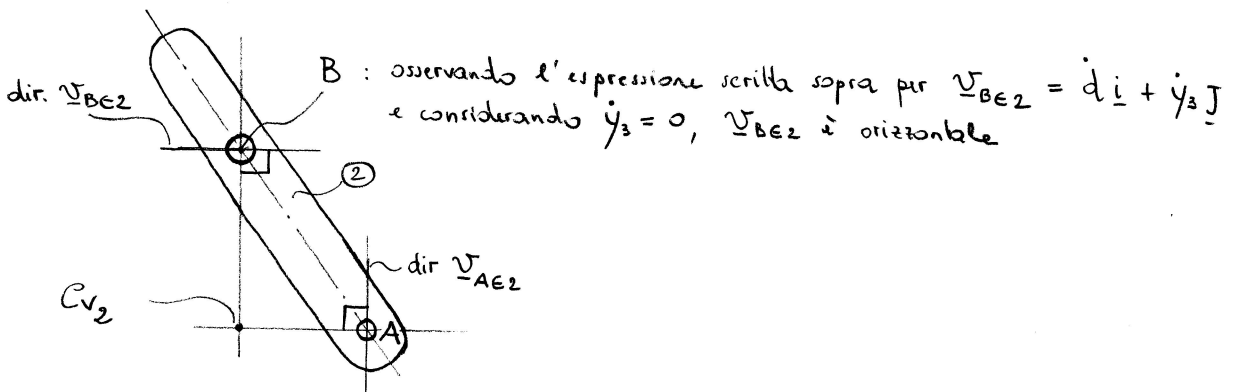 B : osservando l'espressione scritta sopra per v_B∈2 = ḋ i + ẏ₃ j
dir. v_B∈2
e considerando ẏ₃ = 0, v_B∈2 è orizzontale
②
dir v_A∈2
Cv₂
A